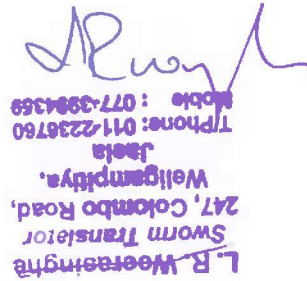 L. R. Weerasinghe
Sworn Translator
247, Colombo Road,
Weligampitiya,
Jaela
T/Phone: 011-2236760
Moble : 077-3984369